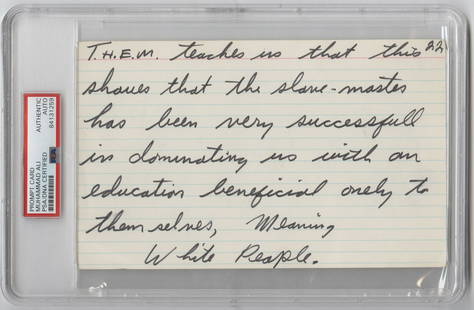 T.H.E.M. teaches us that this 22
shows that the slave-master
has been very successfull
in domonating us with an
education beneficial onely to
them selves, Meaning
White People.
PROMPT CARD
MUHAMMAD ALI
PSA/DNA CERTIFIED
AUTHENTIC
AUTO
84131259
PSA